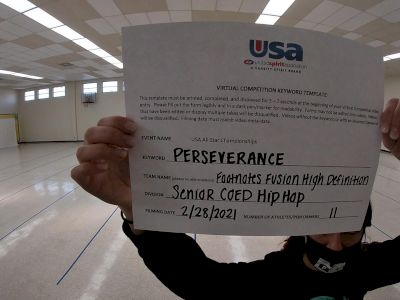 USA
united spirit association
A VARSITY SPIRIT BRAND
VIRTUAL COMPETITION KEYWORD TEMPLATE
This template must be printed, completed, and displayed for 2 - 3 seconds at the beginning of your
entry. Please fill out the form legibly and in a dark pen/marker for readability.
that have been edited or display multiple takes will be disqualified. Videos without the keyword
will be disqualified. Filming data must match video meta-data.
EVENT NAME USA All Star Championships
KEYWORD PERSEVERANCE
TEAM NAME Footnotes Fusion High Definition
DIVISION Senior COED HIP HOP
FILMING DATE 2/28/2021 NUMBER OF ATHLETES/PERFORMERS 11